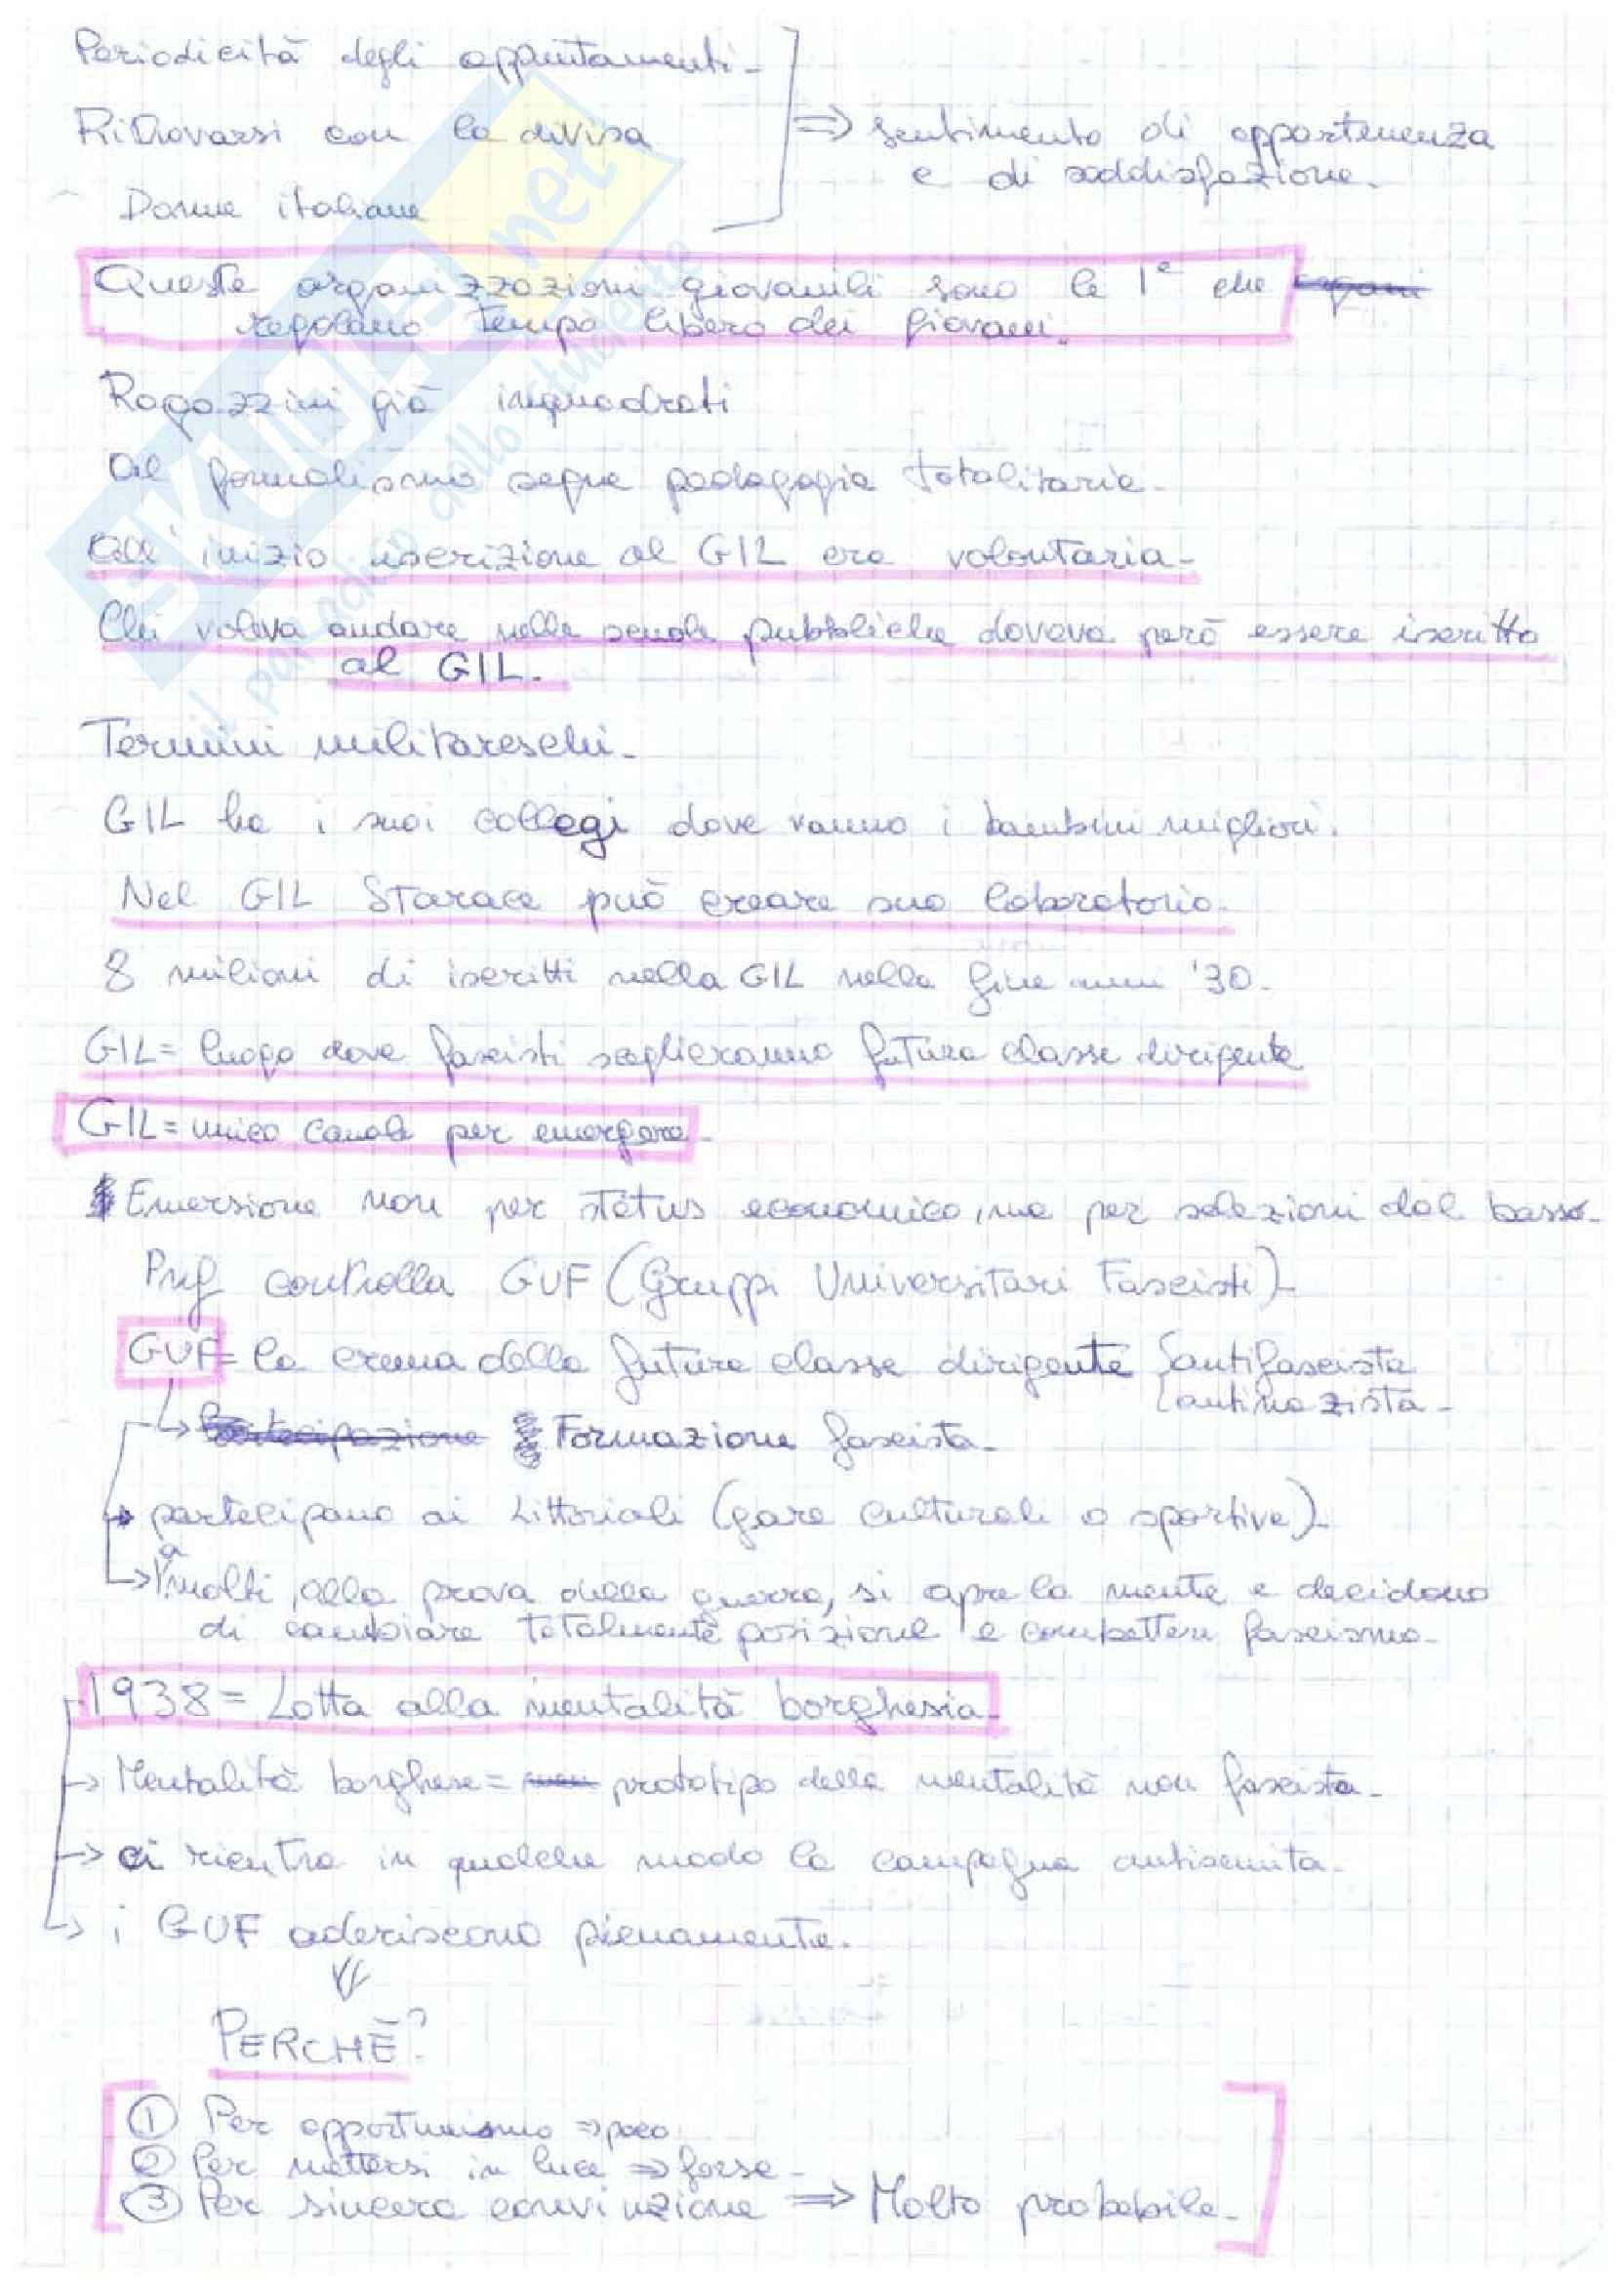 Periodicità degli appuntamenti -
Ritrovarsi con la divisa
⇒ sentimento di appartenenza
e di soddisfazione -
Donne italiane
Queste organizzazioni giovanili sono le 1e che
regolano tempo libero dei giovani.
Ragazzini già inquadrati
Al formalismo segue pedagogia totalitaria -
All'inizio iscrizione al GIL era volontaria -
Chi voleva andare nelle scuole pubbliche doveva però essere iscritto
al GIL.
Termini militareschi -
GIL ha i suoi collegi dove vanno i bambini migliori.
Nel GIL Starace può creare suo laboratorio -
8 milioni di iscritti nella GIL nella fine anni '30 -
GIL = luogo dove fascisti sceglieranno futura classe dirigente
GIL = unico canale per emergere -
Emersione non per status economico, ma per selezioni dal basso -
Pnf controlla GUF (Gruppi Universitari Fascisti) -
GUF = la crema della futura classe dirigente { antifascista
antinazista -
↳ partecipazione Formazione fascista -
→ partecipano ai Littoriali (gare culturali o sportive) -
→ a molti, alla prova della guerra, si apre la mente e decidono
di cambiare totalmente posizione e combattere fascismo -
1938 = Lotta alla mentalità borghesia -
→ Mentalità borghese = prototipo della mentalità non fascista -
→ ci rientra in qualche modo la campagna antisemita -
→ i GUF aderiscono pienamente -
PERCHÈ?
① Per opportunismo ⇒ poco
② Per mettersi in luce ⇒ forse -
③ Per sincera convinzione ⇒ Molto probabile -
SKUOLA.net
il paradiso dello studente